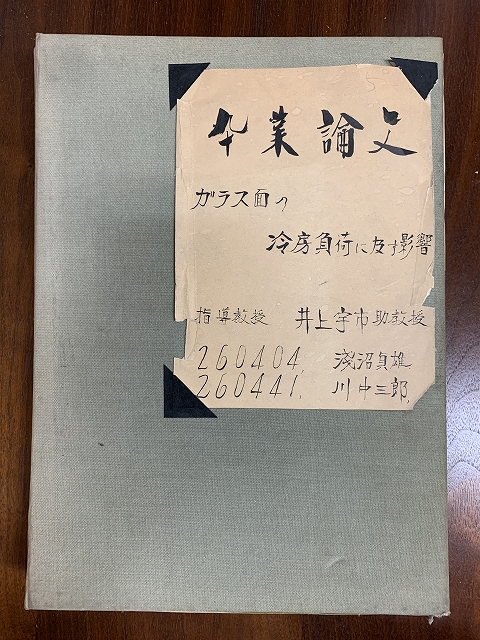 卒業論文
ガラス面の
冷房負荷に及す影響
指導教授 井上宇市助教授
260404. 淺沼貞雄
260441. 川中三郎.